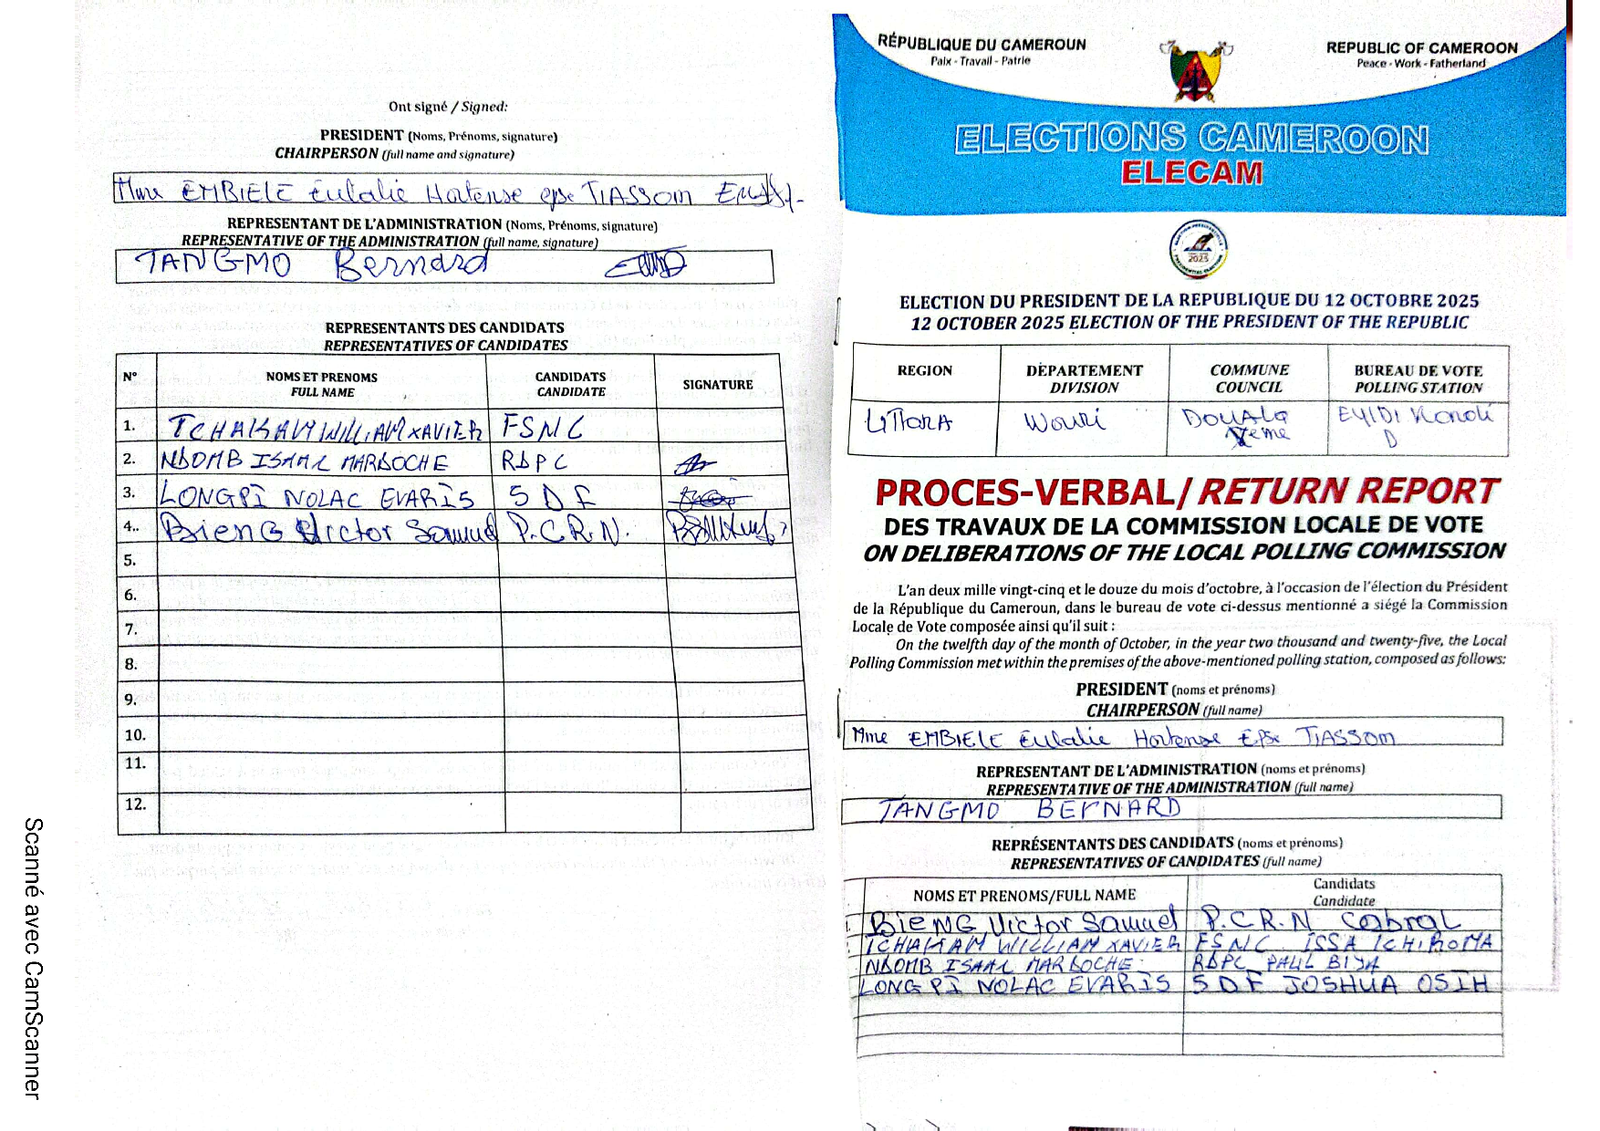 Ont signé / Signed:
PRESIDENT (Noms, Prénoms, signature)
CHAIRPERSON (full name and signature)
Mme EMBIELE Eulalie Hortense epse TIASSOM
REPRESENTANT DE L'ADMINISTRATION (Noms, Prénoms, signature)
REPRESENTATIVE OF THE ADMINISTRATION (full name, signature)
TANGMO Bernard
REPRESENTANTS DES CANDIDATS
REPRESENTATIVES OF CANDIDATES
N° NOMS ET PRENOMS FULL NAME CANDIDATS CANDIDATE SIGNATURE
1. TCHAKAM WILLIAM XAVIER FSNC
2. NDOMB ISAAC MARDOCHE RDPC
3. LONGPI NOLAC EVARIS SDF
4.. BIENG Victor Samuel P.C.R.N.
5.
6.
7.
8.
9.
10.
11.
12.
Scanné avec CamScanner
RÉPUBLIQUE DU CAMEROUN
Paix - Travail - Patrie
REPUBLIC OF CAMEROON
Peace - Work - Fatherland
ELECTIONS CAMEROON
ELECAM
2025
ELECTION DU PRESIDENT DE LA REPUBLIQUE DU 12 OCTOBRE 2025
12 OCTOBER 2025 ELECTION OF THE PRESIDENT OF THE REPUBLIC
REGION DÉPARTEMENT DIVISION COMMUNE COUNCIL BUREAU DE VOTE POLLING STATION
Wouri DOUALA Vème D
PROCES-VERBAL/ RETURN REPORT
DES TRAVAUX DE LA COMMISSION LOCALE DE VOTE
ON DELIBERATIONS OF THE LOCAL POLLING COMMISSION
L'an deux mille vingt-cinq et le douze du mois d'octobre, à l'occasion de l'élection du Président
de la République du Cameroun, dans le bureau de vote ci-dessus mentionné a siégé la Commission
Locale de Vote composée ainsi qu'il suit :
On the twelfth day of the month of October, in the year two thousand and twenty-five, the Local
Polling Commission met within the premises of the above-mentioned polling station, composed as follows:
PRESIDENT (noms et prénoms)
CHAIRPERSON (full name)
Mme EMBIELE Eulalie Hortense Epse TIASSOM
REPRESENTANT DE L'ADMINISTRATION (noms et prénoms)
REPRESENTATIVE OF THE ADMINISTRATION (full name)
TANGMO BERNARD
REPRÉSENTANTS DES CANDIDATS (noms et prénoms)
REPRESENTATIVES OF CANDIDATES (full name)
NOMS ET PRENOMS/FULL NAME Candidats Candidate
BIENG Victor Samuel P.C.R.N Cabral
TCHAKAM WILLIAM XAVIER FSNC ISSA TCHIROMA
NDOMB ISAAC MARDOCHE RDPC PAUL BIYA
LONGPI NOLAC EVARIS SDF JOSHUA OSIH